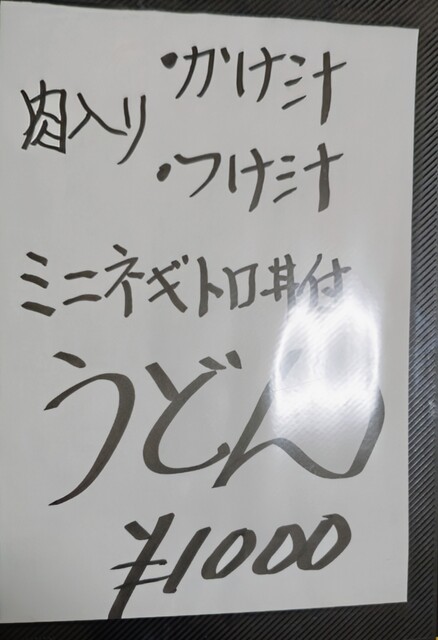 ・かけ汁
肉入り
・つけ汁
ミニネギトロ丼付
うどん
¥1000